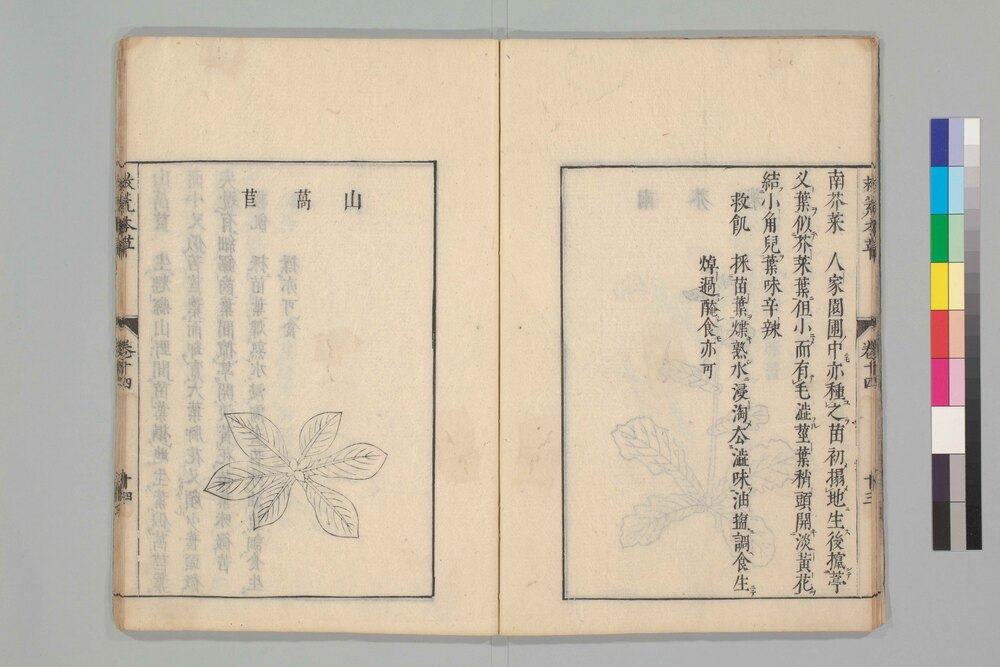 南芥菜　人家園圃中亦種之苗初搨地生後攛葶
义葉似芥菜葉但小而有毛澁莖葉稍頭開淡黃花
結小角兒葉味辛辣
救飢　採苗葉煠熟水浸淘去澁味油塩調食生
焯過醃食亦可
卷十四
十三
山萵苣
救荒本草
卷十四
十四